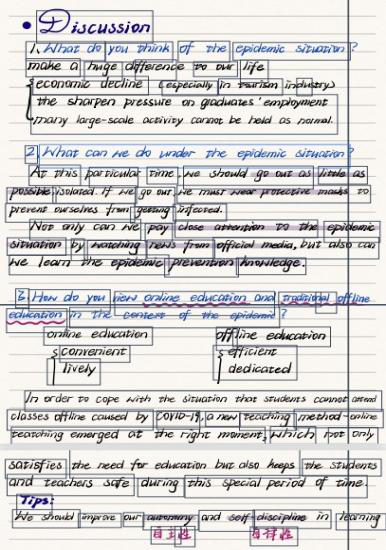 • Discussion
1. What do you think of the epidemic situation?
make a huge difference to our life
economic decline (especially in tourism industry)
the sharpen pressure on graduates' employment
many large-scale activity cannot be held as normal.
2. What can we do under the epidemic situation?
At this particular time, we should go out as little as
possible isolated. If we go out we must wear protective masks to
prevent ourselves from getting infected.
Not only can we pay close attention to the epidemic
situation by watching news from official media, but also can
we learn the epidemic prevention knowledge.
3. How do you view online education and traditional offline
education in the context of the epidemic?
online education offline education
convenient efficient
lively dedicated
In order to cope with the situation that students cannot attend
classes offline caused by COVID-19, a new teaching method-online
teatching emerged at the right moment, which not only
satisfies the need for education but also keeps the students
and teachers safe during this special period of time.
Tips:
We should improve our autonomy and self discipline in learning
自主性 自律性